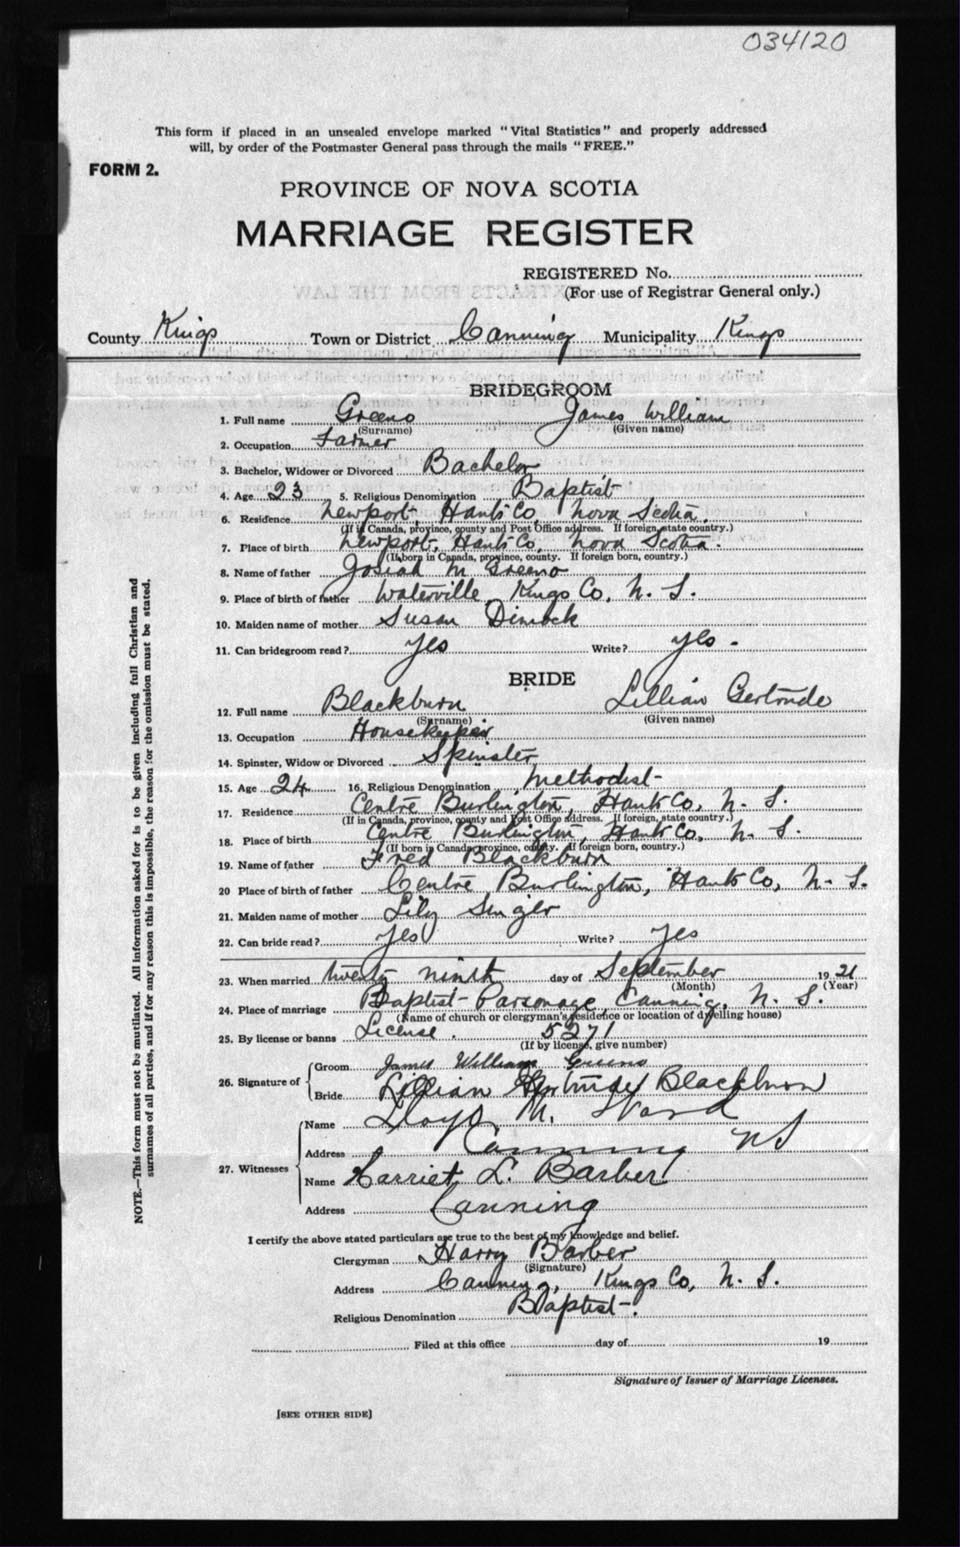 034120
This form if placed in an unsealed envelope marked "Vital Statistics" and properly addressed
will, by order of the Postmaster General pass through the mails "FREE."
FORM 2.
PROVINCE OF NOVA SCOTIA
MARRIAGE REGISTER
REGISTERED No.
(For use of Registrar General only.)
EXTRACTS FROM THE LAW
County Kings Town or District Canning Municipality Kings
BRIDEGROOM
1. Full name Greeno James William
(Surname) (Given name)
2. Occupation Farmer
3. Bachelor, Widower or Divorced Bachelor
4. Age 23 5. Religious Denomination Baptist
6. Residence Newport, Hants Co, Nova Scotia.
(If in Canada, province, county and Post Office address. If foreign, state country.)
7. Place of birth Newport, Hants Co, Nova Scotia.
(If born in Canada, province, county. If foreign born, country.)
8. Name of father Josiah M Greeno
9. Place of birth of father Waterville Kings Co, N. S.
10. Maiden name of mother Susan Dimock
11. Can bridegroom read? Yes Write? Yes -
BRIDE
12. Full name Blackburn Lillian Gertrude
(Surname) (Given name)
13. Occupation Housekeeper
14. Spinster, Widow or Divorced Spinster
15. Age 24 16. Religious Denomination Methodist-
17. Residence Centre Burlington, Hants Co, N. S.
(If in Canada, province, county and Post Office address. If foreign, state country.)
18. Place of birth Centre Burlington, Hants Co, N. S.
(If born in Canada, province, county. If foreign born, country.)
19. Name of father Fred Blackburn
20 Place of birth of father Centre Burlington, Hants Co, N. S.
21. Maiden name of mother Lily
22. Can bride read? Yes Write? Yes
23. When married twenty ninth day of September 1921
(Month) (Year)
24. Place of marriage Baptist-Parsonage, Canning, N. S.
(Name of church or clergyman's residence or location of dwelling house)
25. By license or banns License. 5271
(If by license, give number)
26. Signature of
Groom James William Greeno
Bride Lillian Gertrude Blackburn
27. Witnesses
Name Lloyd M. Ward
Address Canning NS
Name Harriet L. Barber
Address Canning
I certify the above stated particulars are true to the best of my knowledge and belief.
Clergyman Harry Barber
(Signature)
Address Canning, Kings Co, N. S.
Religious Denomination Baptist-.
Filed at this office day of 19
Signature of Issuer of Marriage Licenses.
[SEE OTHER SIDE]
NOTE.—This form must not be mutilated. All information asked for is to be given including full Christian and
surnames of all parties, and if for any reason this is impossible, the reason for the omission must be stated.